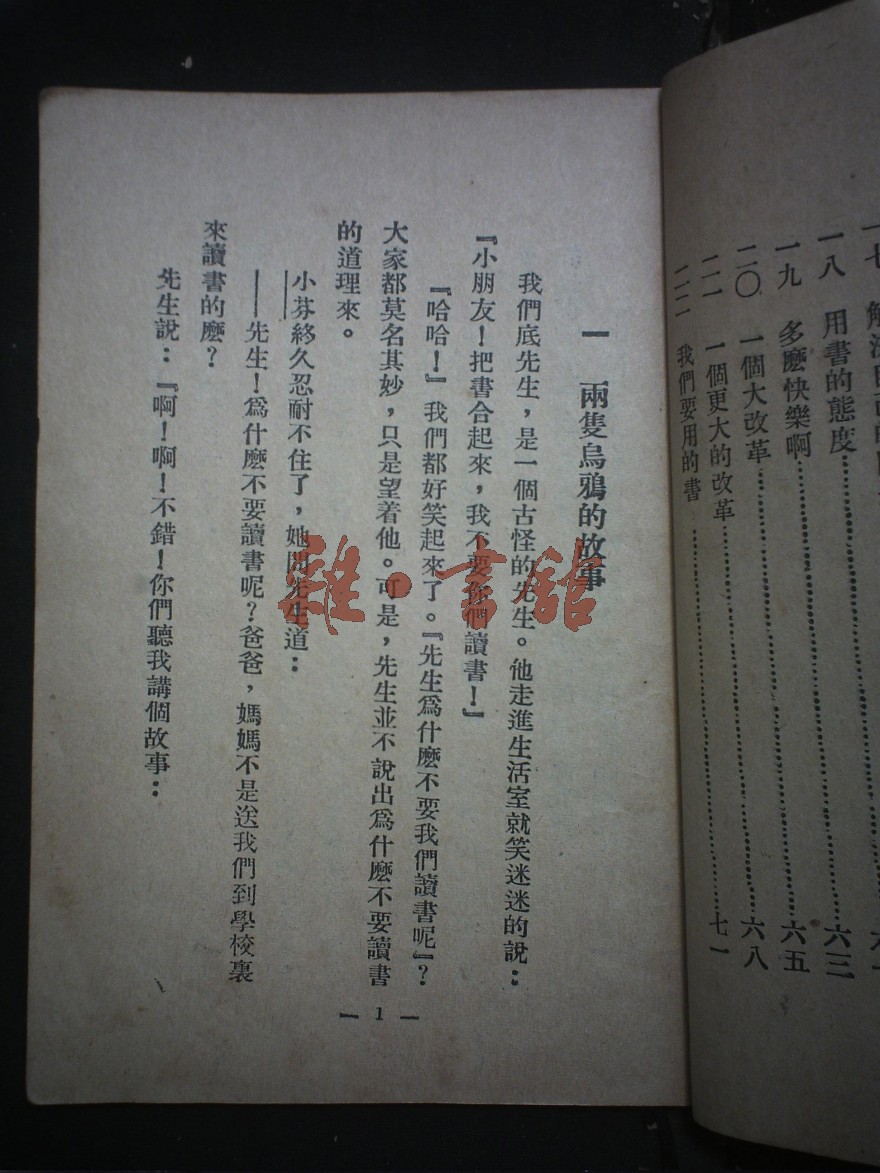 一七
一八 用書的態度 六三
一九 多麽快樂啊 六五
二〇 一個大改革 六八
二一 一個更大的改革 七一
二二 我們要用的書
一 兩隻烏鴉的故事
我們底先生，是一個古怪的先生。他走進生活室就笑迷迷的說：
『小朋友！把書合起來，我不要你們讀書！』
『哈哈！』我們都好笑起來了。『先生爲什麽不要我們讀書呢』？
大家都莫名其妙，只是望着他。可是，先生並不說出爲什麽不要讀書
的道理來。
小芬終久忍耐不住了，她問先生道：
——先生！爲什麽不要讀書呢？爸爸，媽媽不是送我們到學校裏
來讀書的麽？
先生說：『啊！啊！不錯！你們聽我講個故事：
— 1 —
雜·書館